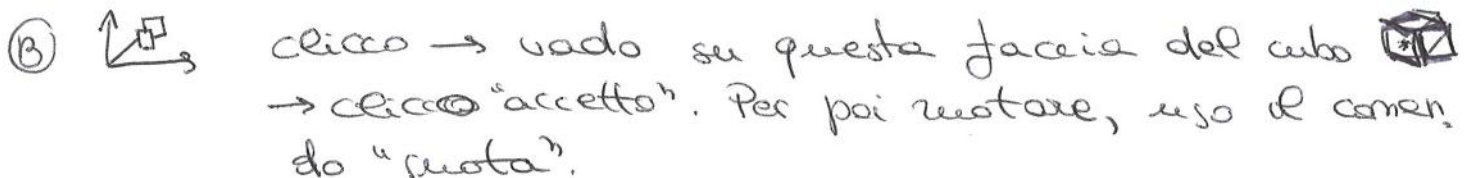 B clicco → vado su questa faccia del cubo
→ clicco "accetto". Per poi ruotare, uso il coman
do "ruota".